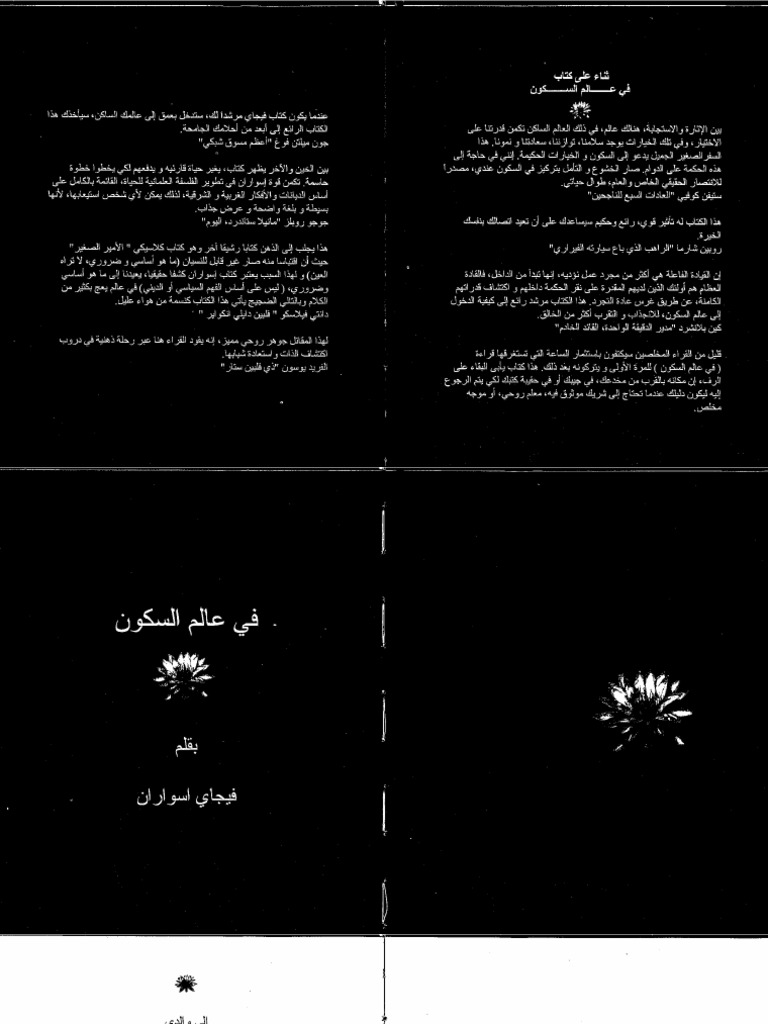 ثناء على كتاب
في عـــــالم الســـــكون
بين الإثارة والاستجابة، هنالك عالم، في ذلك العالم الساكن تكمن قدرتنا على
الاختيار، وفي تلك الخيارات يوجد سلامنا، توازننا، سعادتنا و نمونا. هذا
السفر الصغير الجميل يدعو إلى السكون و الخيارات الحكيمة. إنني في حاجة إلى
هذه الحكمة على الدوام. صار الخشوع و التأمل بتركيز في السكون عندي، مصدراً
للانتصار الحقيقي الخاص والعام، طوال حياتي.
ستيفن كوفيي "العادات السبع للناجحين"
هذا الكتاب له تأثير قوي، رائع وحكيم سيساعدك على أن تعيد اتصالك بنفسك
الخيرة.
روبين شارما "الراهب الذي باع سيارته الفيراري"
إن القيادة الفاعلة هي أكثر من مجرد عمل نؤديه، إنها تبدأ من الداخل، فالقادة
العظام هم أولئك الذين لديهم المقدرة على نقر الحكمة داخلهم و اكتشاف قدراتهم
الكامنة، عن طريق غرس عادة التجرد. هذا الكتاب مرشد رائع إلى كيفية الدخول
إلى عالم السكون، للانجذاب و التقرب أكثر من الخالق.
كين بلانشرد "مدير الدقيقة الواحدة، القائد الخادم"
قليل من القراء المخلصين سيكتفون باستثمار الساعة التي تستغرقها قراءة
( في عالم السكون ) للمرة الأولى و يتركونه بعد ذلك. هذا كتاب يأبى البقاء على
الرف، إن مكانه بالقرب من مخدعك، في جيبك أو في حقيبة كتبك لكي يتم الرجوع
إليه ليكون دليلك عندما تحتاج إلى شريك موثوق فيه، معلم روحي، أو موجه
مخلص.
عندما يكون كتاب فيجاي مرشدا لك، ستدخل بعمق إلى عالمك الساكن، سيأخذك هذا
الكتاب الرائع إلى أبعد من أحلامك الجامحة.
جون ميلتن فوغ "أعظم مسوق شبكي"
بين الحين والآخر يظهر كتاب، يغير حياة قارئيه و يدفعهم لكي يخطوا خطوة
حاسمة. تكمن قوة إسواران في تطوير الفلسفة العلمانية للحياة، القائمة بالكامل على
أساس الديانات والأفكار الغربية و الشرقية، لذلك يمكن لأي شخص استيعابها، لأنها
بسيطة و بلغة واضحة و عرض جذاب.
جوجو روبلز "مانيلا ستاندرد، اليوم"
هذا يجلب إلى الذهن كتابا رشيقا آخر وهو كتاب كلاسيكي " الأمير الصغير"
حيث أن اقتباسا منه صار غير قابل للنسيان (ما هو أساسي و ضروري، لا تراه
العين) و لهذا السبب يعتبر كتاب إسواران كشفا حقيقيا، يعيدنا إلى ما هو أساسي
وضروري، ( ليس على أساس الفهم السياسي أو الديني) في عالم يعج بكثير من
الكلام وبالتالي الضجيج يأتي هذا الكتاب كنسمة من هواء عليل.
دانتي فيلاسكو " فلبين دايلي انكواير "
لهذا المقاتل جوهر روحي مميز، إنه يقود القراء هنا عبر رحلة ذهنية في دروب
اكتشاف الذات و استعادة شبابها.
الفريد يوسون "ذي فلبين ستار"
في عالم السكون
بقلم
فيجاي اسواران
إلى والدي